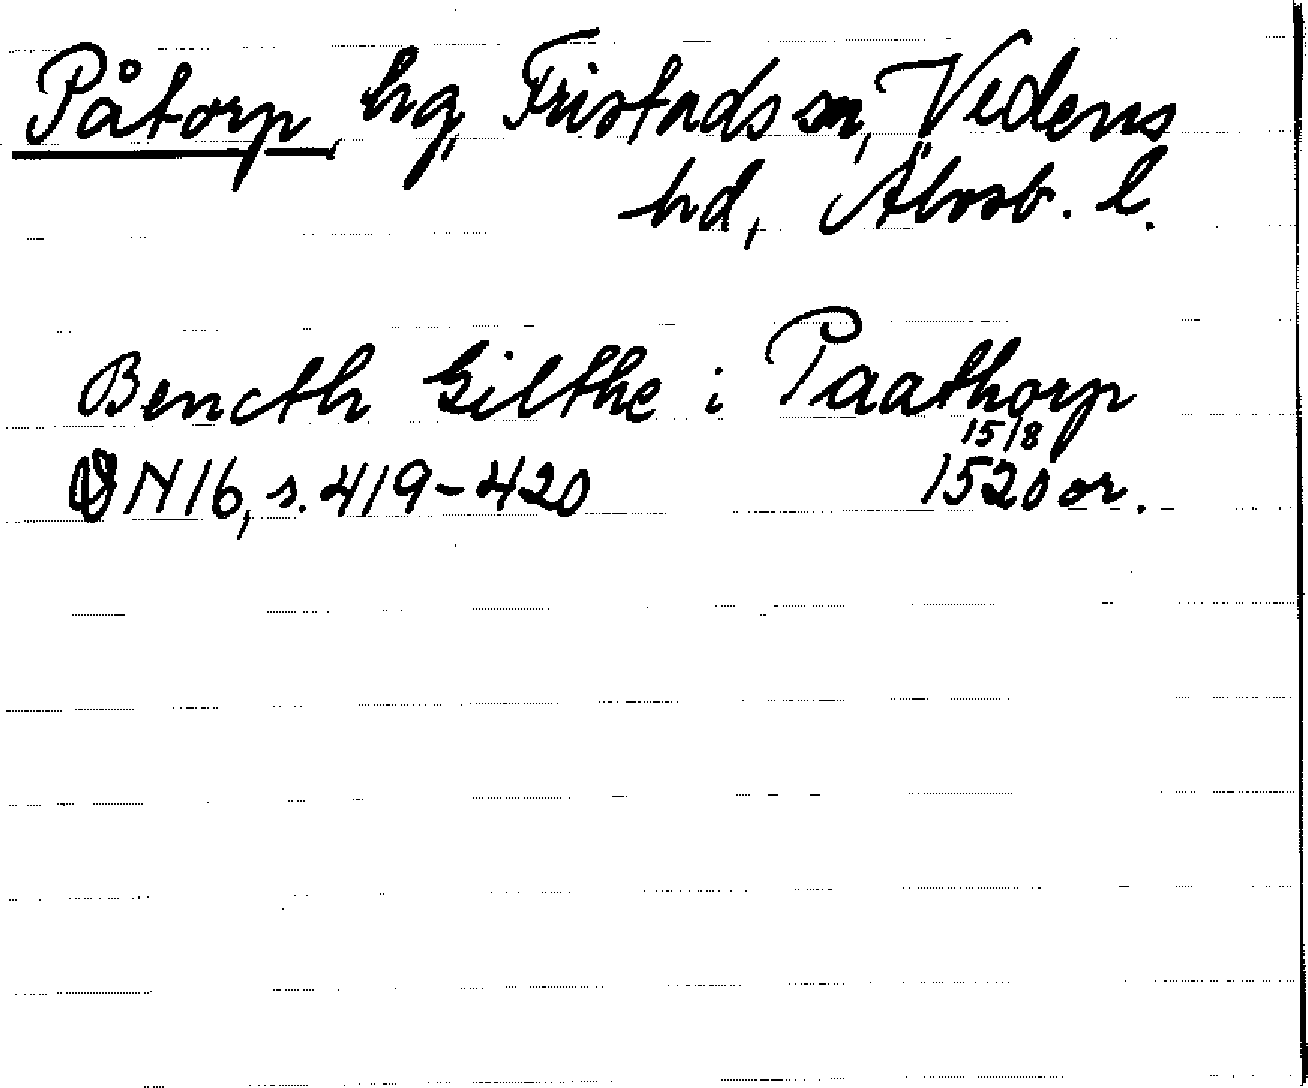 Påtorp, hg, Fristads sn, Vedens
hd, Älvsb. l.
Bencth Gilthe i Paathorp
15/8
DN 16, s. 419-420 1520 or.